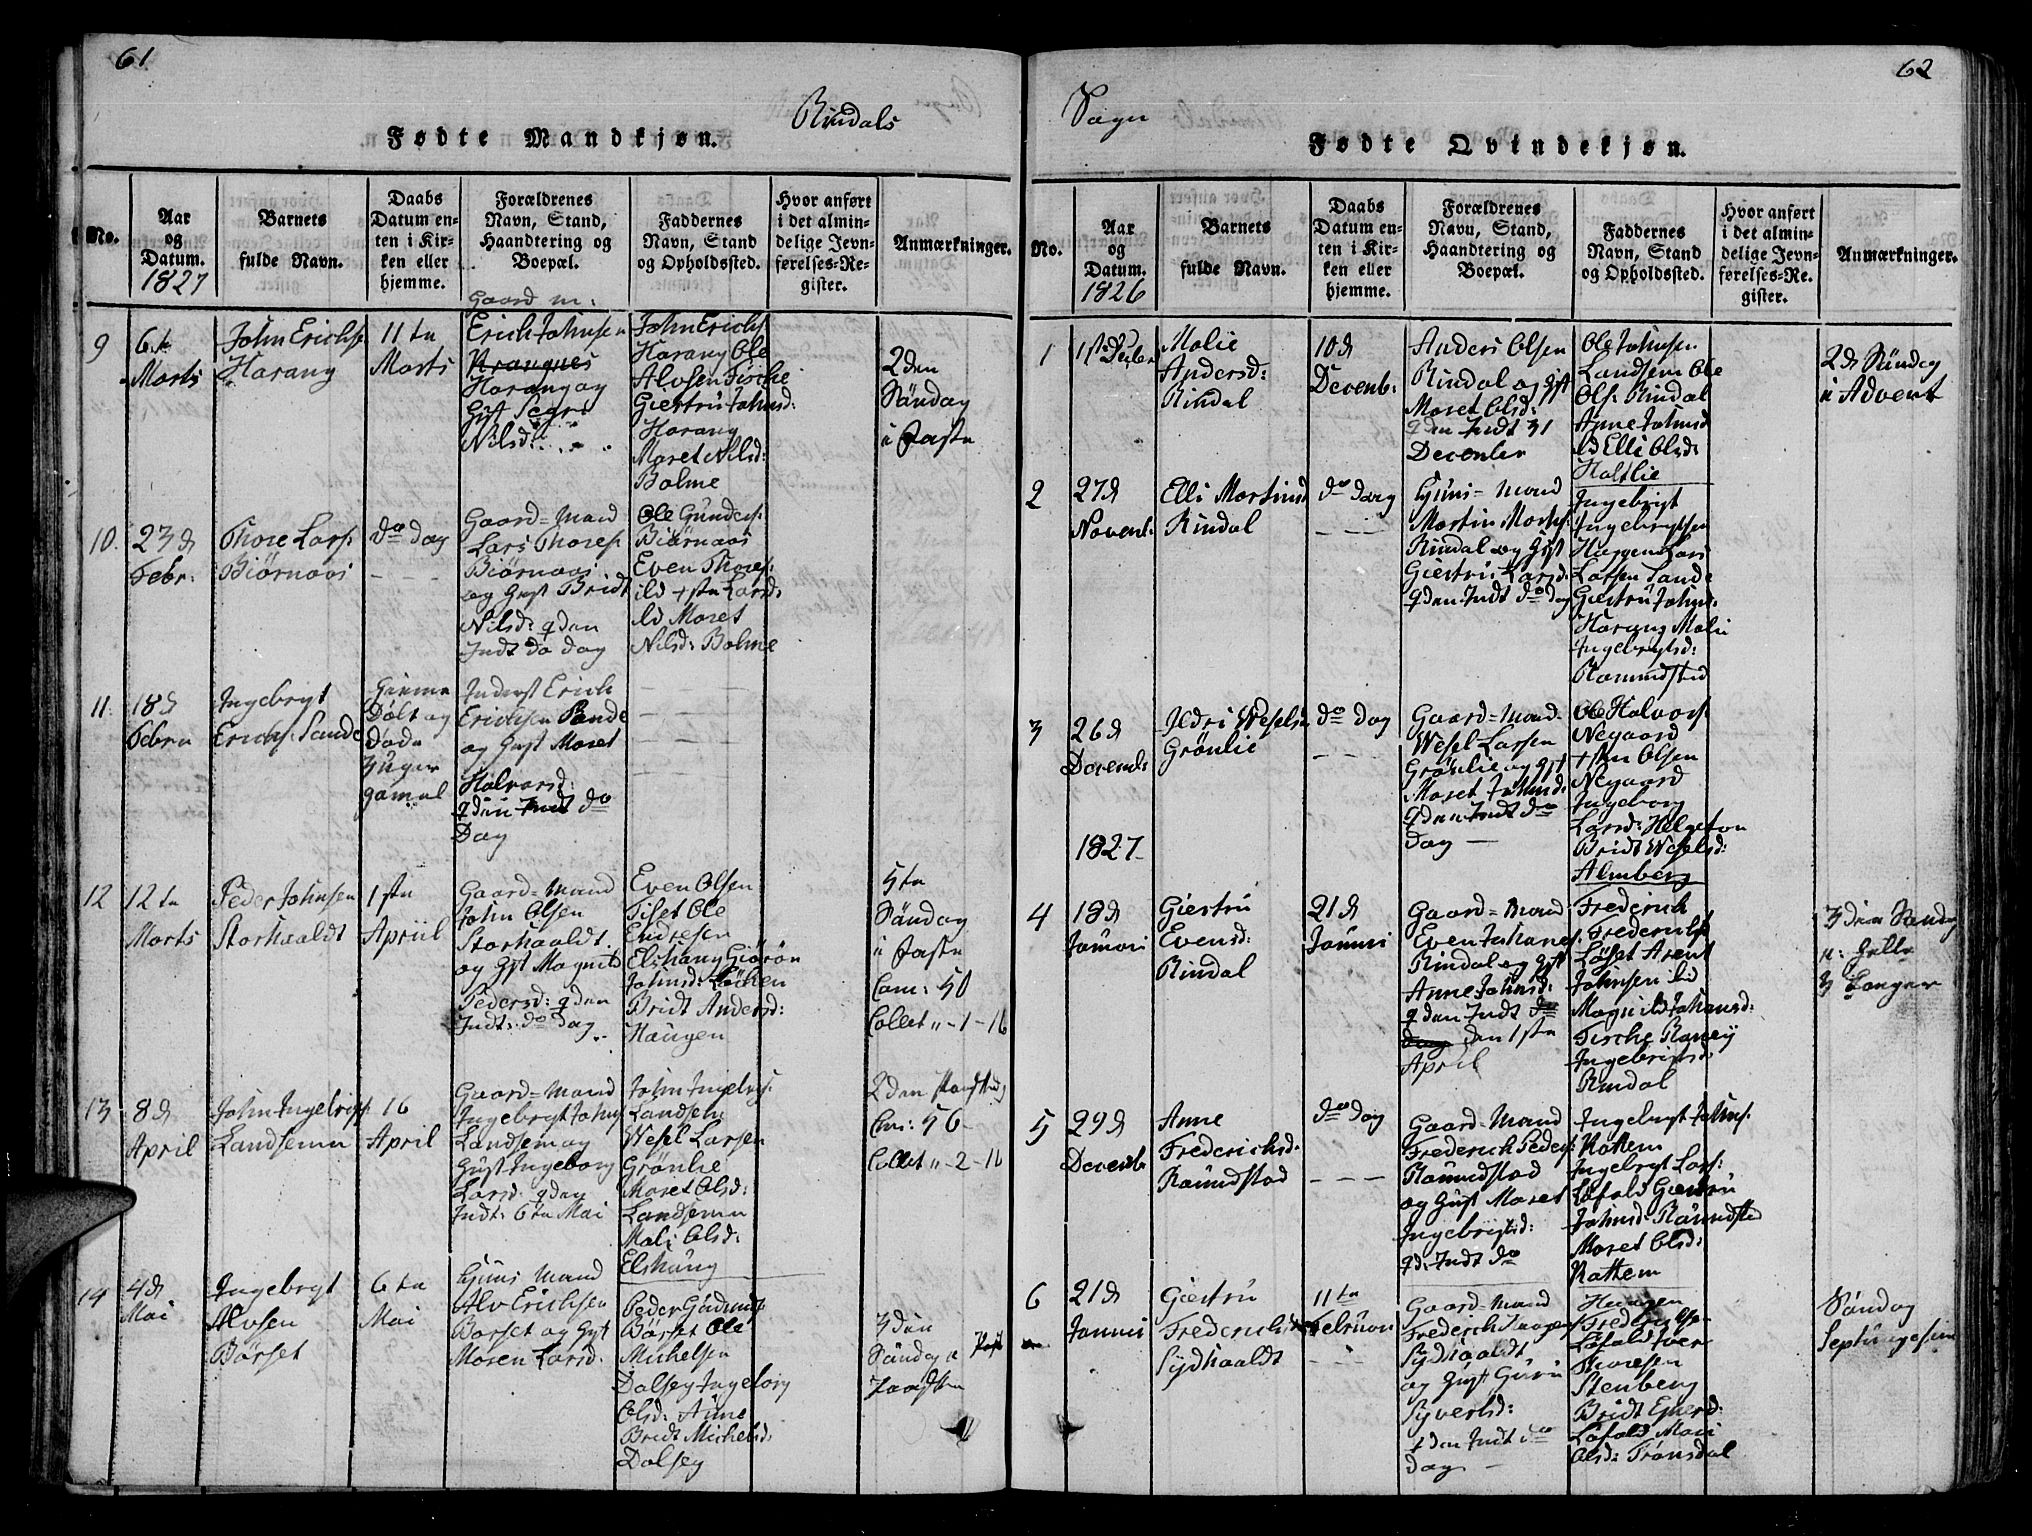 61
Rindals
Fødte Mandkjøn.
No.
Aar
og
Datum.
1827
Barnets
fulde Navn.
Daabs
Datum en-
ten i Kir-
ken eller
hjemme.
Forældrenes
Navn, Stand,
Haandtering og
Boepæl.
Faddernes
Navn, Stand
og Opholdssted.
Hvor anført
i det almin-
delige Jevn-
førelses-Re-
gister.
Anmærkninger.
9
6te
Marts
John Erichs
Harang
11te
Marts
Gaard m:
Erich Johnsen
Harang og
Gift Segri
Nilsd:
John Erichs
Harang Ole
Alvsen Fiske
Giestru Johnsd:
Harang
Maret Nilsd:
Bolme
2den
Søndag
i Faste
10.
23d
Febr:
Thore Lars:
Biørnaas
do Dag
Gaard=Mand
Lars Thores
Biørnaas
og Gift Bridt
Nilsd: qden
Indt do Dag
Ole Gunders:
Biørnaas
Even Thores:
ild
ld Maret
Nilsd: Bolme
11.
18d
Febru
Ingebrygt
Erichs: Sande
Hiemme
Døbt og
Døde
3 Uger
gamal
Inderst Erich
Erichsen Sande
og Gift Maret
Halvorsd:
qden Indt do
Dag
12
12te
Marts
Peder Johnsen
Storhaaldt
1ste
Apriil
Gaard=Mand
John Olsen
Storhaaldt
og Gift Magnild
Pedersd: qden
Indt: do Dag
Even Olsen
Tiset Ole
Endresen
Elshaug Giørøn
Johnsd: Løcken
Bridt Andersd:
Haugen
5te
Søndag
i Faste
Com: 50
Collet „-1-16
13
8d
April
John Ingebrigts
Landsemm
16
April
Gaard=Mand
Ingebrygt Johns
Landsem og
Gift Ingeborg
Larsd: qden
Indt: 6te Mai
John Ingebrygts:
Landsem
Wesel Larsen
Grønlie
Maret Olsd:
Landsemm
Mali Olsd:
Elshaug
2den Paaskedag
Com: 56
Collet „-2-16
14
4d
Mai
Ingebrygt
Alvsen
Børset
6te
Mai
Huus Mand
Alv Erichsen
Børset og Gift
Maren Larsd:
Peder Gudmunds
Børset Ole
Michelsen
Dalseg Ingeborg
Olsd: Anne
Bridt Michelsd:
Dalseg
3die
Søndag e Paask
62
Sogn
Fødte Qvindekjøn.
No.
Aar
og
Datum.
1826
Barnets
fulde Navn.
Daabs
Datum en-
ten i Kir-
ken eller
hjemme.
Forældrenes
Navn, Stand,
Haandtering og
Boepæl.
Faddernes
Navn, Stand
og Opholdssted.
Hvor anført
i det almin-
delige Jevn-
førelses-Re-
gister.
Anmærkninger.
1
1ste Decbr
Malie
Andersd:
Rindal
10d
Decemb:
Anders Olsen
Rindal og Gift
Maret Olsd:
qden Indt 31
December
Ole Johnsen
Landsem Ole
Ols: Rindal
Anne Johnsd
ld Elli Olsd:
Haltlie
2d Søndag
i Advent
2
27d
Novemb:
Elli Martinsd
Rindal
do Dag
Huus=Mand
Martin Mortens:
Rindal og Gift
Giestru Larsd:
qden Indt do Dag
Ingebrigt
Ingebrygtsen
Haugen Lars
Larsen Sande
Giestru Johnsd:
Harang Mali
Ingebrygtsd:
Ramundstad
3
26d
Decemb
Ildri Weselsd
Grønlie
do Dag
Gaard=Mand
Wesel Larsen
Grønlie og Gift
Maret Johnsd:
qden Indt do
Dag
Ole Halvors:
Negaard
Olsen
Negaard
Ingeborg
Larsd: Helgeton
Bridt Weselsd:
Almberg
1827
4
18d
Januari
Giestru
Evensd:
Rindal
21d
Januri
Gaard=Mand
Even Johanes
Rindal og Gift
Anne Johnsd:
qden Indt do
Dag den 1ste
April
Frederich
Frederichs:
Løset Arent
Johnsen ld
Magnild Johansd:
Fiske Raney
Ingebrigtsd:
Rindal
3die Søndag
e: Hellig
3 Konger
5
29d
Decemb
Anne
Frederichsd:
Ramundstad
do Dag
Gaard=Mand
Frederich Peders
Ramundstad
og Gift Maret
Ingebrigtsd:
qd: Indt do
Ingebrygt Johns:
Rattem
Ingebrygt Lars:
Løfald Giestru
Johnsd: Ramundsted
Maret Olsd:
Rattem
6
21d
Januri
Giestru
Frederichsd
Sydhaaldt
11te
Februari
Gaard=Mand
Frederich Haagens
Sydhaaldt
og Gift Guru
Syversd:
qden Indt do
Dag
Haagen
Fredrigtsen
Løfald Iver
Thoresen
Stenberg
Bridt Eserd:
Løfald Mari
Olsd: Trønsdal
Søndag
Septuagesim